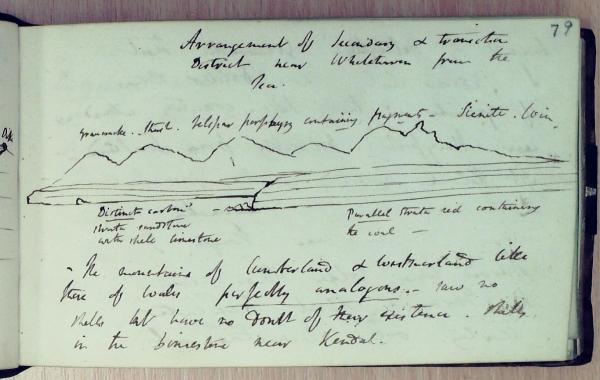 79
Arrangement of Secondary & transition
District near Whitehaven from the
Sea.
Grauwacke. Shist. Felspar porphyry containing fragments - Sienite.
Distinct
strata sandstone
with shale limestone
Parallel strata red containing
the coal -
The mountains of Cumberland & Westmorland like
those of Wales perfectly analogous. - saw no
shells but have no doubt of their existence. shells
in the limestone near Kendal.